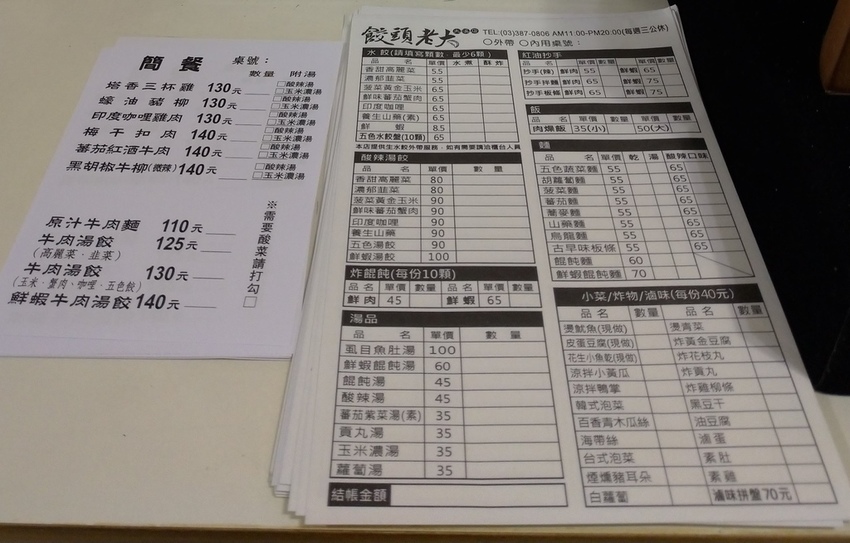 簡餐 桌號：
數量 附湯
塔香三杯雞 130元 □酸辣湯 □玉米濃湯
蠔油豬柳 130元 □酸辣湯 □玉米濃湯
印度咖哩雞肉 130元 □酸辣湯 □玉米濃湯
梅干扣肉 140元 □酸辣湯 □玉米濃湯
蕃茄紅酒牛肉 140元 □酸辣湯 □玉米濃湯
黑胡椒牛柳(微辣) 140元 □酸辣湯 □玉米濃湯
原汁牛肉麵 110元
牛肉湯餃 125元
(高麗菜．韭菜)
牛肉湯餃 130元
(玉米．蟹肉．咖哩．五色餃)
鮮蝦牛肉湯餃 140元
※需要酸菜請打勾□
餃頭老大 TEL:(03)387-0806 AM11:00-PM20:00(每週三公休)
○外帶 ○內用 桌號：
水餃(請填寫顆數，最少6顆)
品名 單價 水煮 鮮炸
香甜高麗菜 55
濃郁韭菜 55
菠菜黃金玉米 65
鮮味蕃茄蟹肉 65
印度咖哩 65
養生山藥(素) 65
鮮蝦 8.5
五色水餃盤(10顆) 65
本店提供生水餃外帶服務，如有需要請洽櫃台人員
酸辣湯餃
品名 單價 數量
香甜高麗菜 80
濃郁韭菜 80
菠菜黃金玉米 90
鮮味蕃茄蟹肉 90
印度咖哩 90
養生山藥 90
五色湯餃 90
鮮蝦湯餃 100
炸餛飩(每份10顆)
品名 單價 數量 品名 單價 數量
鮮肉 45 鮮蝦 65
湯品
品名 單價 數量
虱目魚肚湯 100
鮮蝦餛飩湯 60
餛飩湯 45
酸辣湯 45
蕃茄紫菜湯(素) 35
貢丸湯 35
玉米濃湯 35
蘿蔔湯 35
結帳金額
紅油抄手
品名 單價 數量 品名 單價 數量
抄手(辣) 鮮肉 55 鮮蝦 65
抄手拌麵 鮮肉 65 鮮蝦 75
抄手板條 鮮肉 65 鮮蝦 75
飯
品名 單價 數量 單價 數量
肉燥飯 35(小) 50(大)
麵
品名 單價 乾 湯 酸辣口味
五色蔬菜麵 55 65
胡蘿蔔麵 55 65
菠菜麵 55 65
蕃茄麵 55 65
蕎麥麵 55 65
山藥麵 55 65
烏龍麵 55 65
古早味板條 55 65
餛飩麵 60
鮮蝦餛飩麵 70
小菜/炸物/滷味(每份40元)
品名 數量 品名 數量
燙魷魚(現做) 燙青菜
皮蛋豆腐(現做) 炸黃金豆腐
花生小魚乾(現做) 炸花枝丸
涼拌小黃瓜 炸貢丸
涼拌鴨掌 炸雞柳條
韓式泡菜 黑豆干
百香青木瓜絲 油豆腐
海帶絲 滷蛋
台式泡菜 素肚
煙燻豬耳朵 素雞
白蘿蔔 滷味拼盤70元